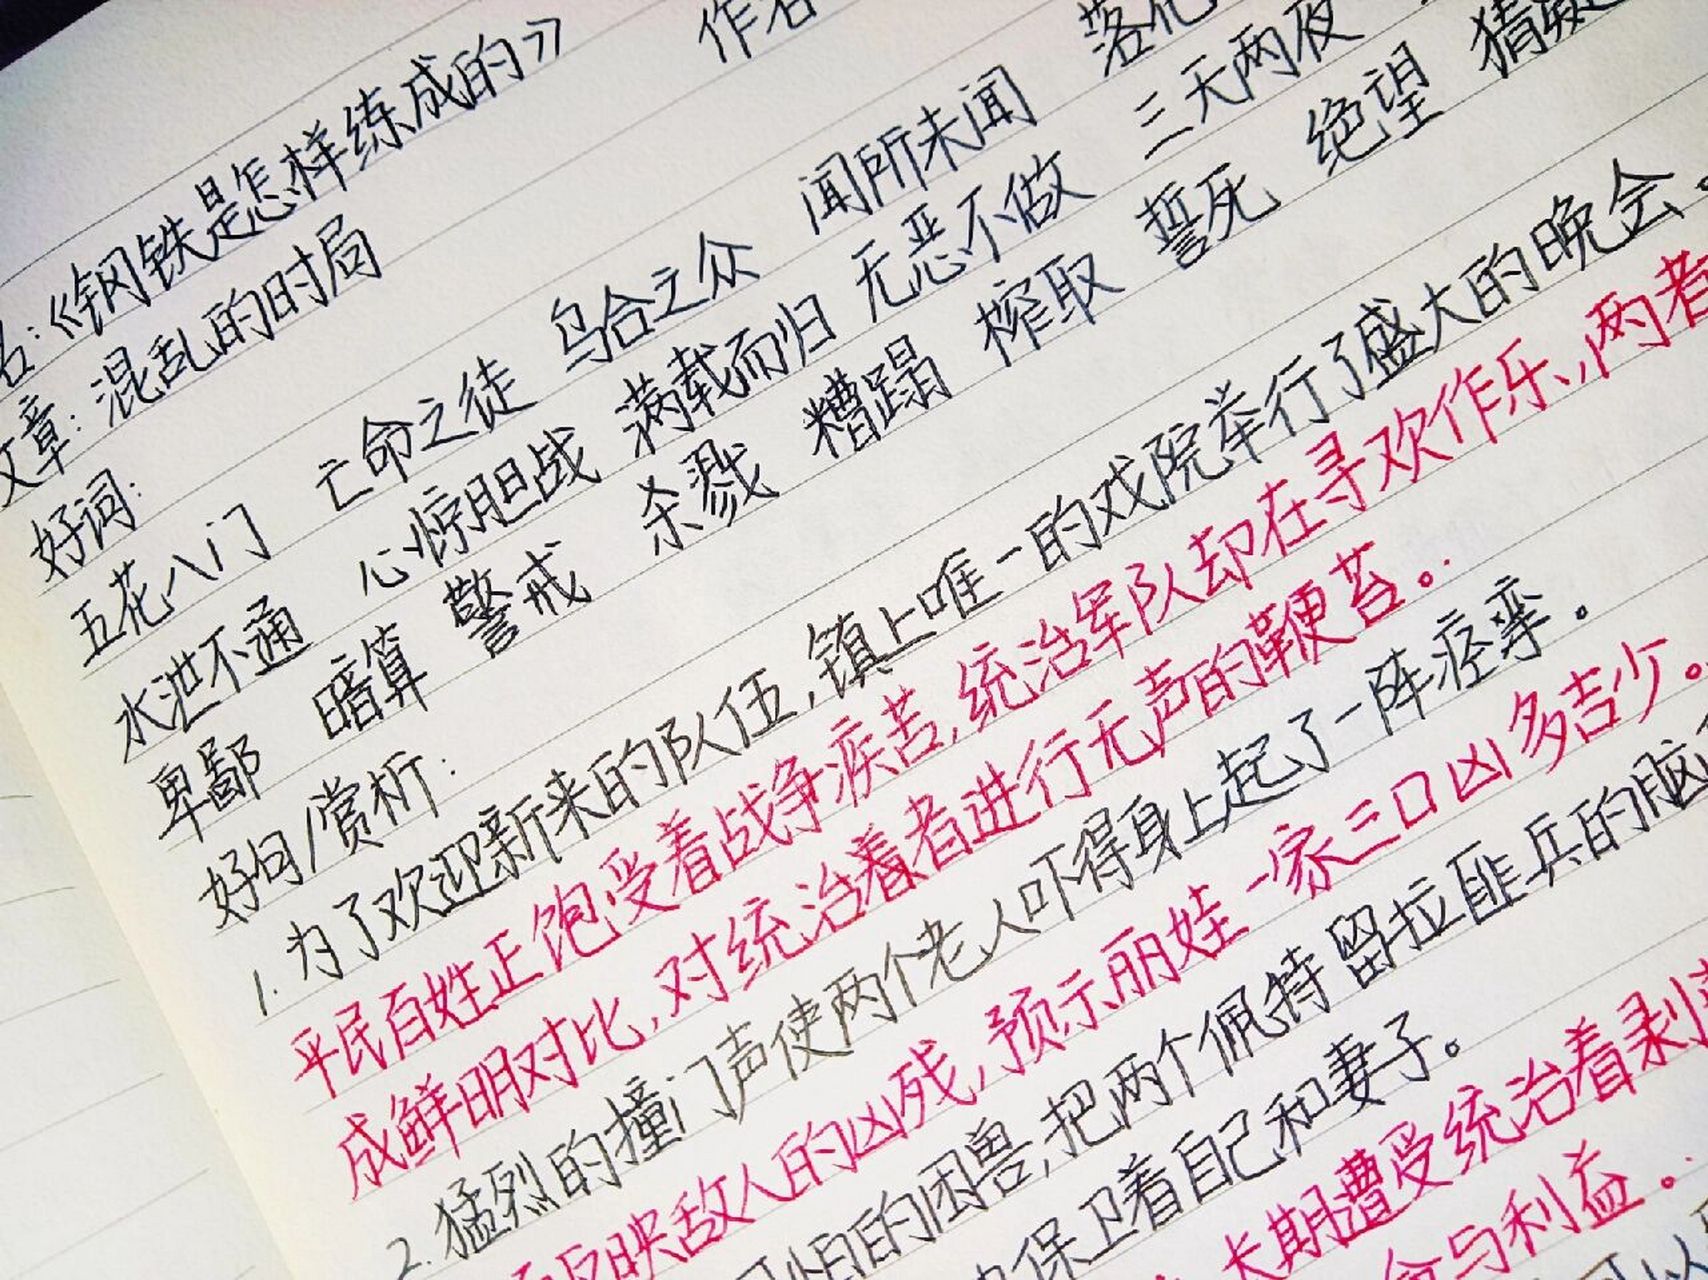 名:《钢铁是怎样练成的》 作者
文章:混乱的时局
好词:
五花八门 亡命之徒 乌合之众 闻所未闻 落花
水泄不通 心惊胆战 满载而归 无恶不做 三天两夜
卑鄙 暗算 警戒 杀戮 糟蹋 榨取 誓死 绝望 猜疑
好句/赏析:
1.为了欢迎新来的队伍,镇上唯一的戏院举行了盛大的晚会。
平民百姓正饱受着战争疾苦,统治军队却在寻欢作乐,两者
成鲜明对比,对统治着者进行无声的鞭苔。
2.猛烈的撞门声使两个老人吓得身上起了一阵痉挛。
反映敌人的凶残,预示丽娃一家三口凶多吉少。
怕的困兽,把两个佩特留拉匪兵的脑
保卫着自己和妻子。
长期遭受统治着剥
命与利益。
可以